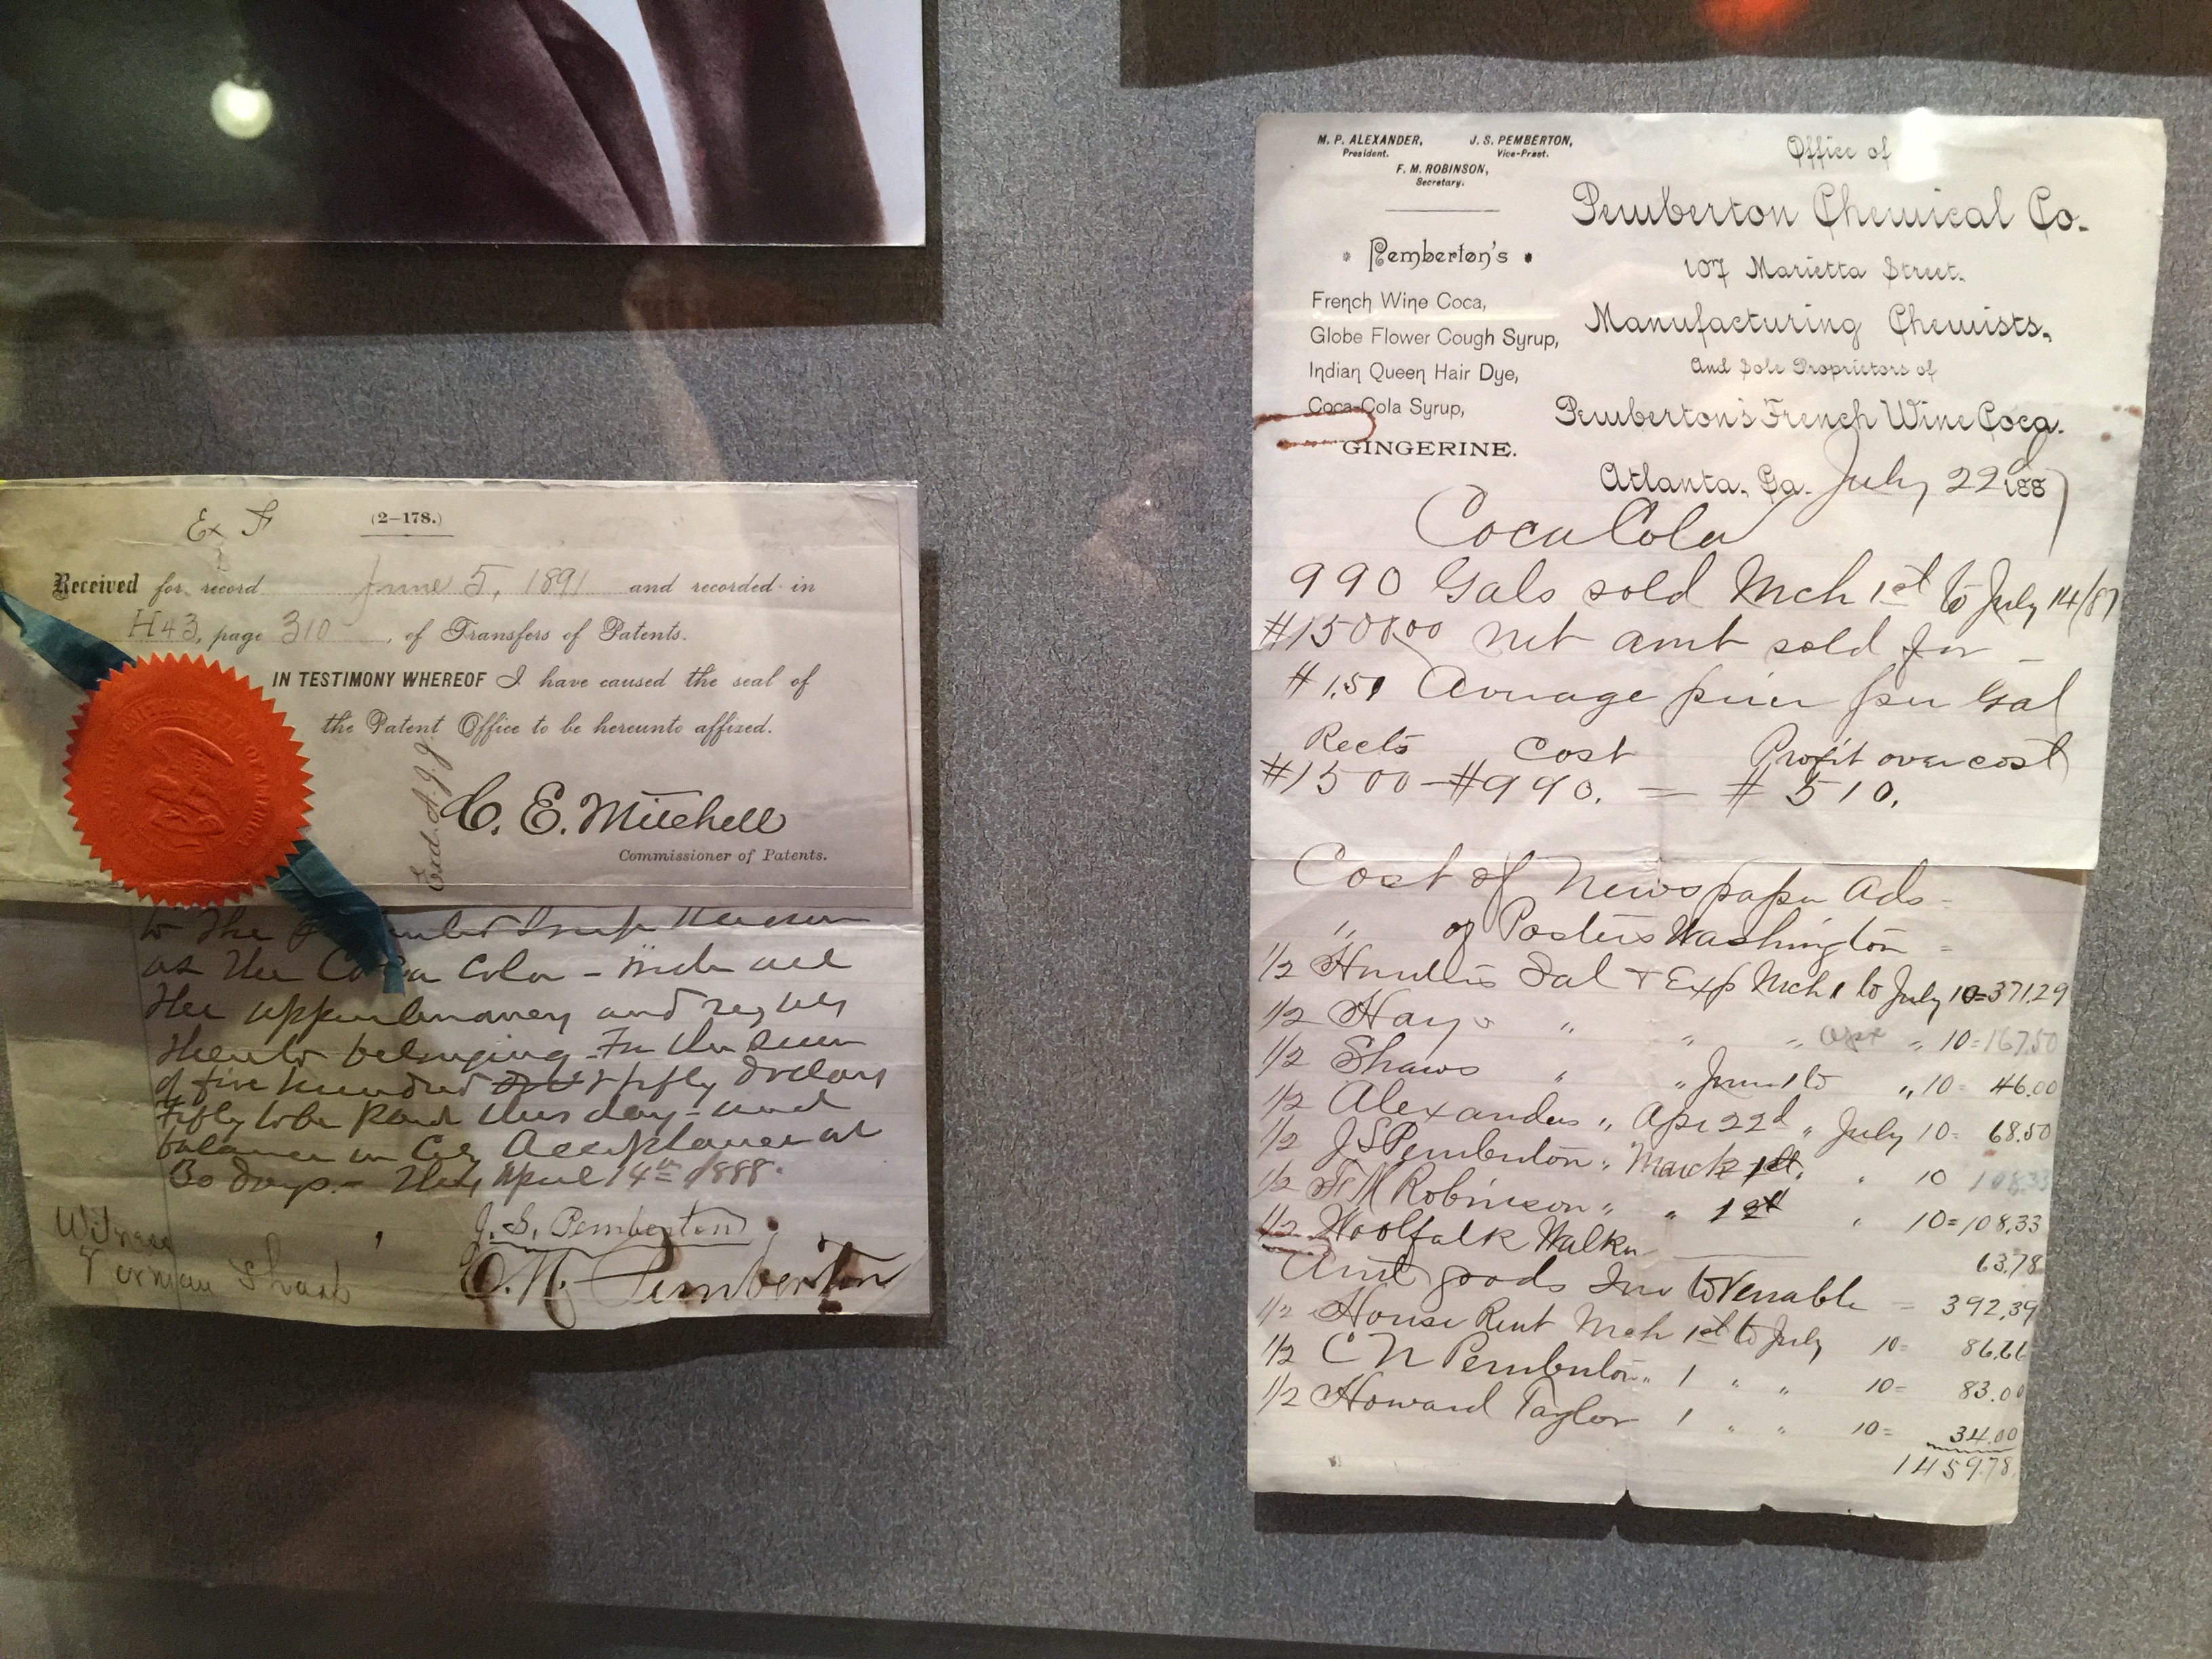 Ex F
(2-178.)
Received for record June 5, 1891 and recorded in
H43, page 310, of Transfers of Patents.
IN TESTIMONY WHEREOF I have caused the seal of
the Patent Office to be hereunto affixed.
C. E. Mitchell
Commissioner of Patents.
to the
as the Coca Cola -
the and
thereto belonging - For the sum
of five hundred & fifty dollars
Fifty to be paid this day - and
balance in at
30 days. - This, April 14th 1888.
J. S. Pemberton
Witness
C. N. Pemberton
M. P. ALEXANDER,
President.
J. S. PEMBERTON,
Vice-Prest.
F. M. ROBINSON,
Secretary.
Pemberton's
French Wine Coca,
Globe Flower Cough Syrup,
Indian Queen Hair Dye,
Coca-Cola Syrup,
GINGERINE.
Office of
Pemberton Chemical Co.
107 Marietta Street.
Manufacturing Chemists.
And Sole Proprietors of
Pemberton's French Wine Coca.
Atlanta, Ga. July 22d 1887
Coca Cola
990 Gals sold Mch 1st to July 14/87
$150000 net amt sold for -
$1.51 Average price per Gal
Recets Cost Profit over cost
$1500 - $990. = $510.
Cost of Newspaper Ads -
" of Posters Washington =
1/2 Sal & Exp Mch 1 to July 10=371,29
1/2 Hays " " " Apr " 10=167.50
1/2 Shaws " " June 1 to " 10= 46.00
1/2 Alexanders " Apr 22d " July 10= 68.50
1/2 J S Pemberton " March 1st " 10 108.33
1/2 F M Robinson " " 1st " 10=108,33
1/2 Woolfalk Walker 63.78
Amt goods Inv to Venable = 392,39
1/2 House Rent Mch 1st to July 10= 86.66
1/2 C N Pemberton " 1 " " 10= 83.00
1/2 Howard Taylor 1 " " 10= 34.00
1459.78